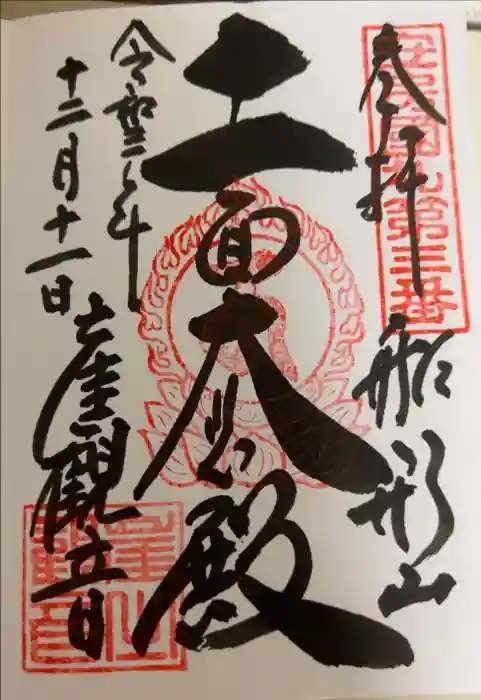 奉拝
安房國札第三番
船形山
十一面大悲殿
令和二年
十二月十一日
崖觀音